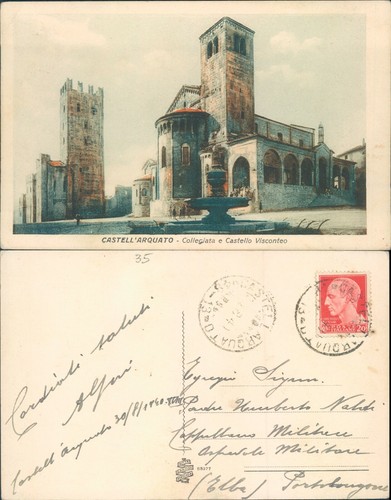 CASTELL'ARQUATO - Collegiata e Castello Visconteo
35
Cordiali saluti
Alfieri
Castell'arquato 30/8/1940 XVIII
CASTELL'ARQUATO
Egregio Signor
Padre Umberto Naldi
Cappellano Militare
Ospedale Militare
(Elba) Portolongone